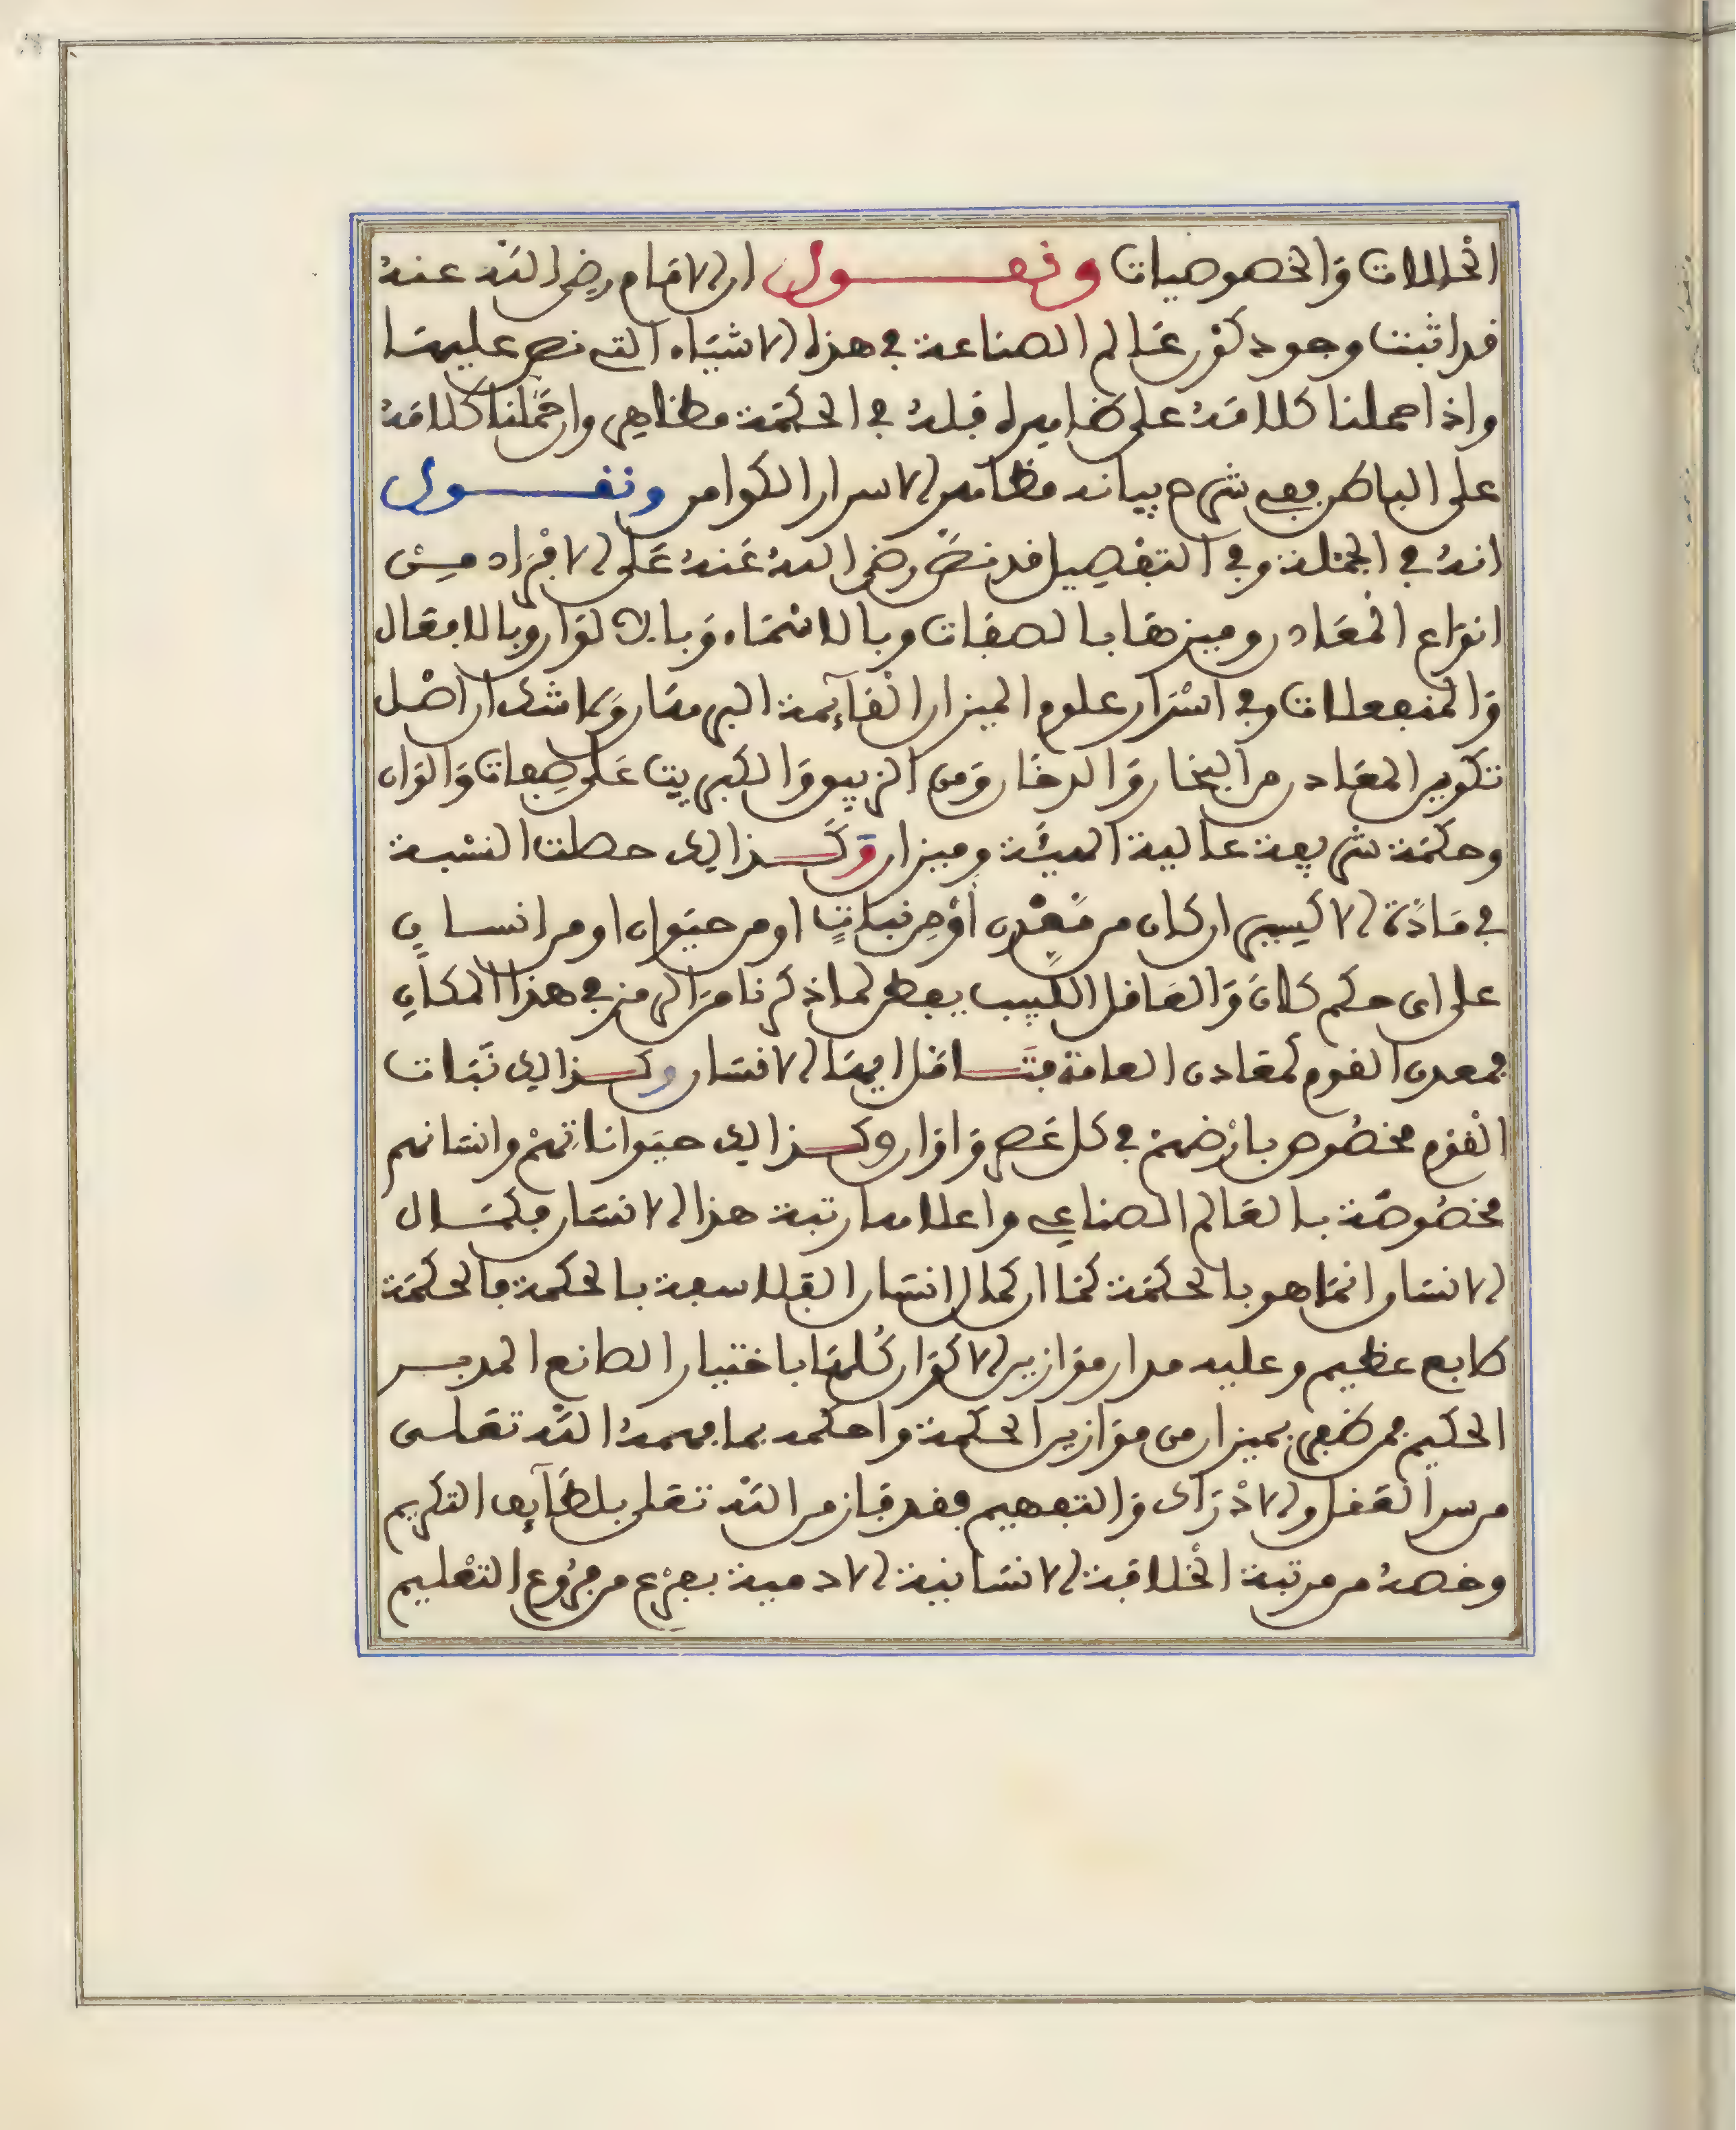 الحالات والخصوصيات ونقول ان الامام رضى الله عنه
قد اثبت وجود كون عالم الصناعة في هذه الاشياء التي نص عليها
واذا حملنا كلامه على ظاهره فله في الحكمة مظاهر وان حملنا كلامه
على الباطن ففي شرح بيانه مظاهر الاسرار الكوامن ونقول
انه في الجملة وفي التفصيل قد نص رضى الله عنه على الافراد من
انواع المعادن وميزها بالصفات وبالاسماء وبالالوان وبالافعال
والمنفعلات وفي اسرار علوم الميزان القآئمة البرهان ولا شك ان اصل
تكوين المعادن من البخار والدخان ومن الزيبق والكبريت على صفات والوان
وحكمة شريفة عالية الهيئة وميزان وكذالك حصلت النسبة
في مادة الاكسير ان كان من معدن او من نبات او من حيوان او من انسان
على اى حكم كان والعاقل اللبيب يفطن لما ذكرنا من الرمز في هذا المكان
فمعدن القوم كمعادن العامة فتامل ايها الانسان وكذالك نبات
القوم مخصوص بارضهم في كل عصر واوان وكذالك حيواناتهم وانسانهم
مخصوصة بالعالم الصناعي واعلاها رتبة هذا الانسان فكمال
الانسان انما هو بالحكمة كما ان كمال انسان الفلاسفة بالحكمة فالحكمة
طابع عظيم وعليه مدار موازين الاكوان كلها باختيار الصانع المدبر
الحكيم فمن ظفر بميزان من موازين الحكمة واحكمه بما فهمه الله تعلى
من سر العقل والادراك والتفهيم فقد فاز من الله تعلى بلطآيف التكريم
وخصه من مرتبة الخلافة الانسانية الادمية بفرع من فروع التعليم